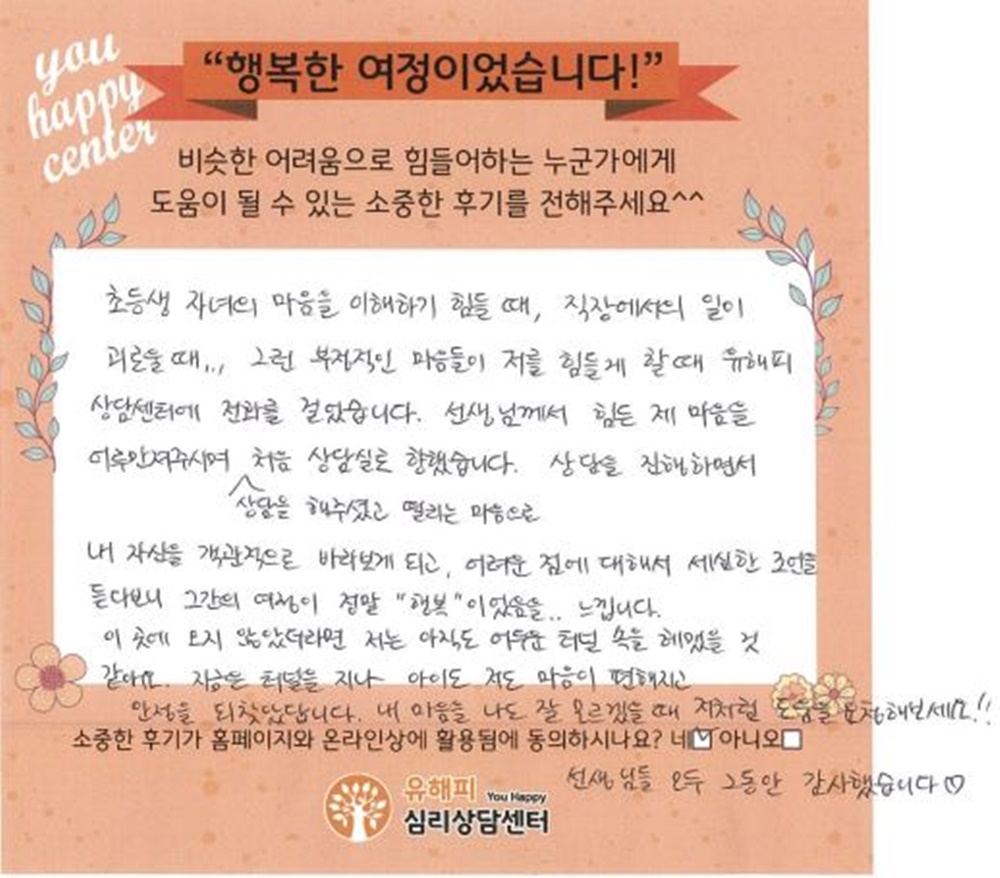 you
happy
center
“행복한 여정이었습니다!”
비슷한 어려움으로 힘들어하는 누군가에게
도움이 될 수 있는 소중한 후기를 전해주세요^^
초등생 자녀의 마음을 이해하기 힘들 때, 직장에서의 일이
괴로울 때... 그런 부정적인 마음들이 저를 힘들게 할 때 유해피
상담센터에 전화를 걸었습니다. 선생님께서 힘든 제 마음을
어루만져주시며 처음 상담실로 향했습니다. 상담을 진행하면서
상담을 해주셨고 떨리는 마음으로
내 자신을 객관적으로 바라보게 되고, 어려운 점에 대해서 세심한 조언을
듣다보니 그간의 여정이 정말 "행복"이었음을.. 느낍니다.
이 곳에 오지 않았더라면 저는 아직도 어두운 터널 속을 헤맸을 것
같아요. 지금은 터널을 지나 아이도 저도 마음이 편해지고
안정을 되찾았답니다. 내 마음을 나도 잘 모르겠을 때 저처럼 도움을 요청해보세요!!
소중한 후기가 홈페이지와 온라인상에 활용됨에 동의하시나요? 네☑ 아니오☐
선생님들 모두 그동안 감사했습니다♡
유해피 You Happy
심리상담센터